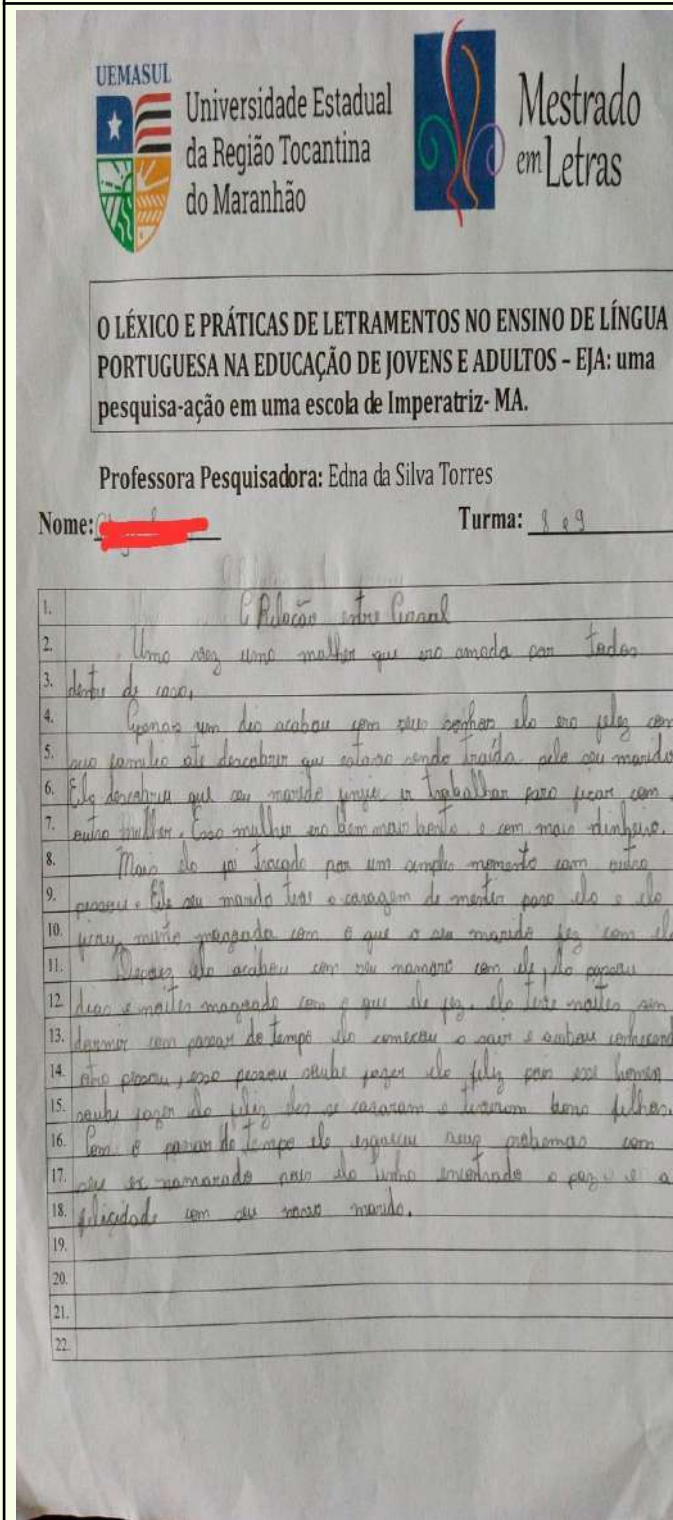 UEMASUL
Universidade Estadual
da Região Tocantina
do Maranhão
Mestrado
em Letras
O LÉXICO E PRÁTICAS DE LETRAMENTOS NO ENSINO DE LÍNGUA
PORTUGUESA NA EDUCAÇÃO DE JOVENS E ADULTOS – EJA: uma
pesquisa-ação em uma escola de Imperatriz- MA.
Professora Pesquisadora: Edna da Silva Torres
Nome:
Turma: 8 e 9
1. Relação entre
2. Uma vez uma mulher que era amada por todos
3. dentro de casa,
4. um dia acabou com seus sonhos ela era feliz com
5. sua família até descobrir que estava sendo traída pelo seu marido
6. Ela descobriu que seu marido ir trabalhar para ficar com
7. outra mulher. Essa mulher era bem mais e com mais dinheiro.
8. Mais ela foi trocada por um simples momento com outra
9. pessou. Ele seu marido teve a coragem de mentir para ela e ela
10. ficou com o que o seu marido fez com ela
11. ela acabou com seu namoro com ele, ela passou
12. dias e noites magoada com o que ele fez. ela teve noites sem
13. dormir com passar do tempo ela começou a sair e acabou
14. pessou, essa pessou soube fazer ela feliz pois esse homem
15. soube fazer ela feliz eles se casaram e tiveram filhos.
16. Com o passar do tempo ela seus com
17. seu ex namorado pois ela tinha encontrado a paz e a
18. felicidade com seu marido.
19.
20.
21.
22.